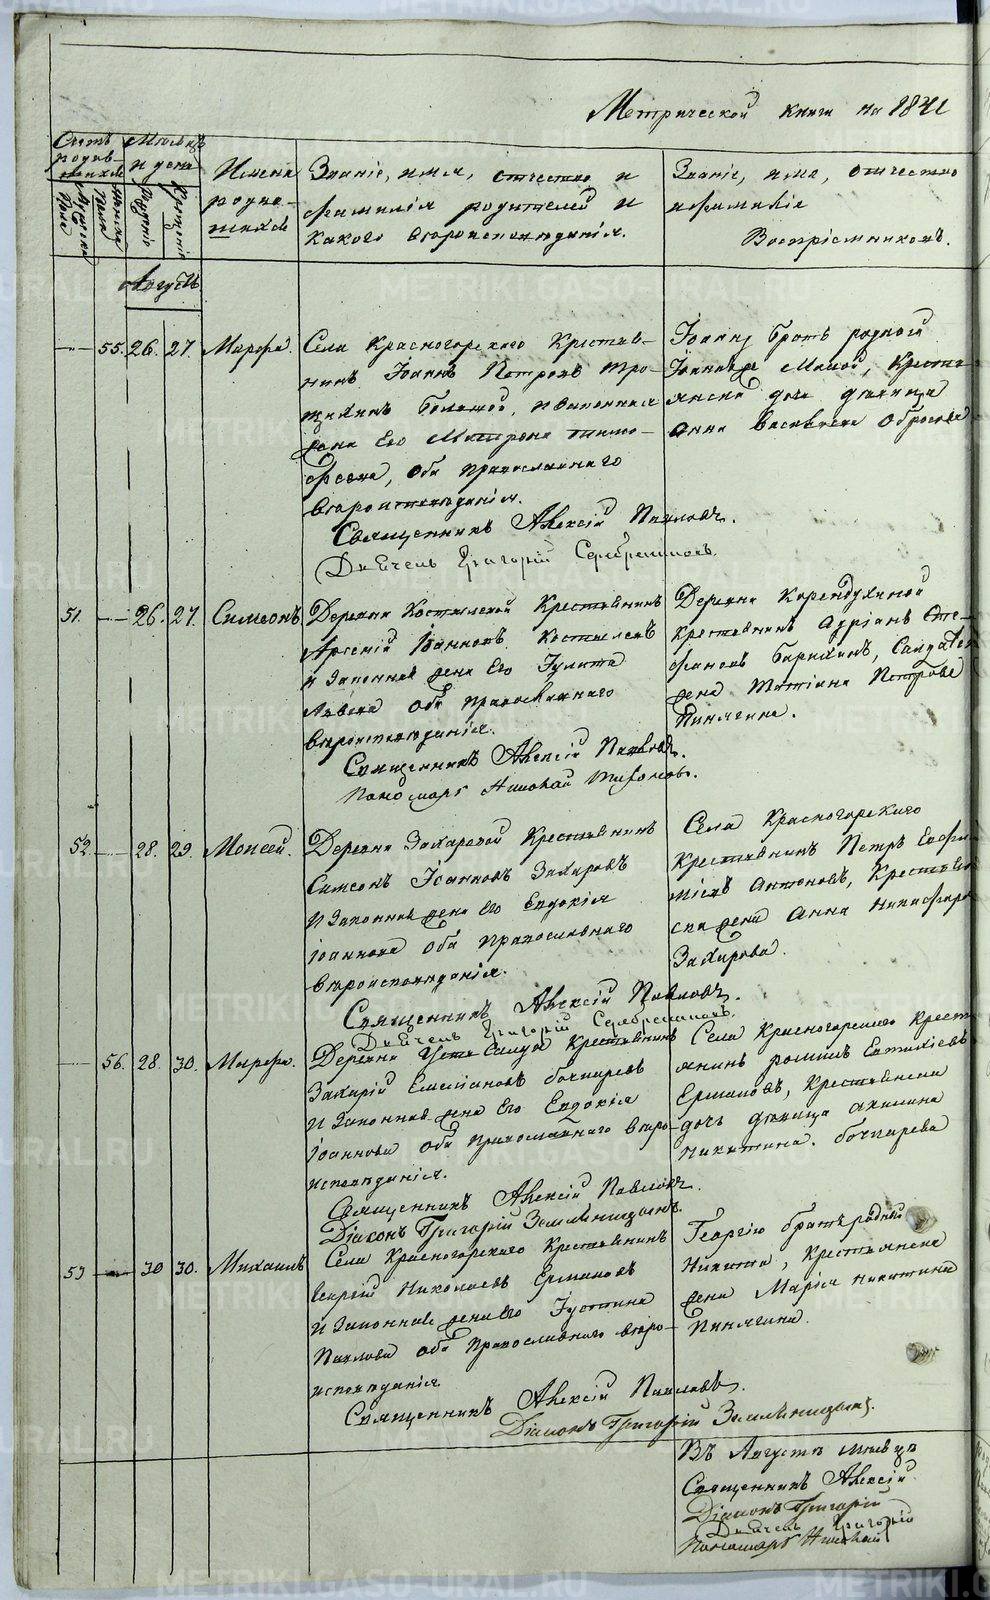 Метрической книги на 1841
Счетъ
родив-
шихся
Мѣсяцъ
и день
Имена
родив-
шихся
Званіе, имя, отчество и
фамилія родителей и
какого вѣроисповѣданія.
Званіе, имя, отчество
и фамилія
Воспріемниковъ.
Мужеска
пола
Женска
пола
Рожденія
Крещенія
Августъ
55. 26. 27. Марѳа.
Села Красногорского Крестьян-
нинъ Іоаннъ Петровъ
Большой, и законная
жена Его Матрона Тимо-
феева, оба православнаго
вѣроисповѣданія.
Священникъ Алексій Павловъ.
Дьячекъ Григорій Серебрениковъ.
Іоанну братъ родной
Іоаннъ же Малой, Кресть-
янска дочь дѣвица
Анна Васильева
51. 26. 27. Симеонъ
Деревни Костылевой Крестьянинъ
Арсеній Іоанновъ Костылевъ
и законная жена Его Іулита
оба православнаго
вѣроисповѣданія.
Священникъ Алексій Павловъ.
Пономарь Николай Тихоновъ.
Деревни
крестьянинъ Адріанъ Сте-
фановъ Салдатск
жена Татіана Петрова
Пинягина.
52 28. 29. Моисей.
Деревни Захаровой Крестьянинъ
Симеонъ Іоанновъ Захаровъ
и законная жена Его Евдокія
Іоаннова оба православнаго
вѣроисповѣданія.
Священникъ Алексій Павловъ.
Дьячекъ Григорій Серебрениковъ.
Села Красногорского
крестьянинъ Петръ Евфи-
міевъ Антоновъ, Крестьян-
ска жена Анна Никифоро
Захарова.
56. 28. 30. Марѳа.
Деревни Усть Салды Крестьянинъ
Захарій Емеліановъ Бочкаревъ
и законная жена Его Евдокія
Іоаннова оба православнаго вѣро-
исповѣданія.
Священникъ Алексій Павловъ.
Діаконъ Григорій Земляницынъ.
Села Красногорского Крест
янинъ Евтихіевъ
Ермаковъ, Крестьянска
дочь дѣвица Акилина
Никитина Бочкарева
53 30 30. Михаилъ
Села Красногорского Крестьянинъ
Георгій Николаевъ Ермаковъ
и законная жена Его Іустина
Павлова оба православнаго вѣро-
исповѣданія
Священникъ Алексій Павловъ.
Діаконъ Григорій Земляницынъ.
Георгію братъ родный
Никита, крестьянска
жена Марія Никитина
Пинягина.
Въ Августѣ мѣсяцѣ
Священникъ Алексій
Діаконъ Григорій
Дьячекъ Григорій
Пономарь Николай
METRIKI.GASO-URAL.RU